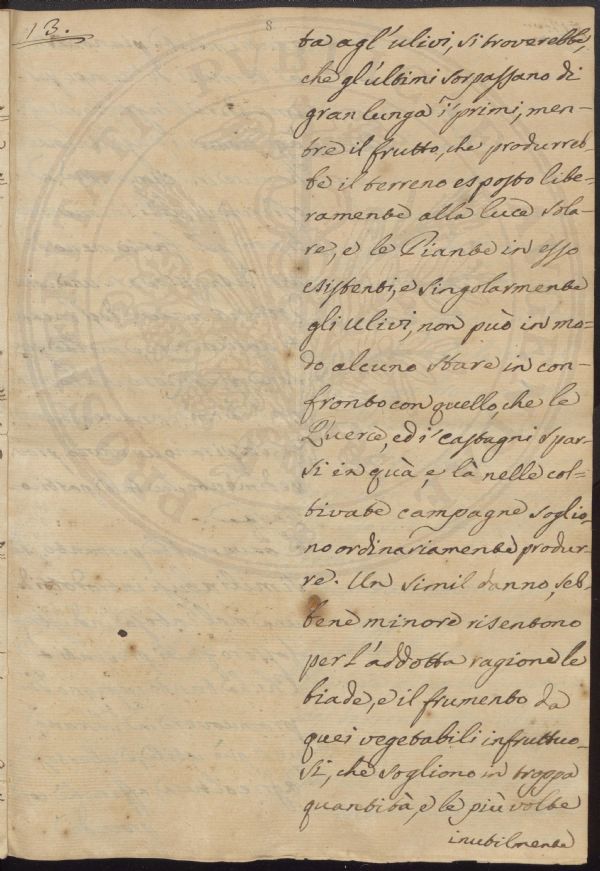 13.
8
ta agl'ulivi, si troverebbe,
che gl'ultimi sorpassano di
gran lunga i primi, men-
tre il frutto, che produrreb-
be il terreno esposto libe-
ramente alla luce sola-
re, e le Piante in esso
esistenti, e singolarmente
gli ulivi, non può in mo-
do alcuno stare in con-
fronto con quello, che le
Querce, ed i castagni spar-
si in quà, e là nelle col-
tivate campagne soglio-
no ordinariamente produr-
re. Un simil danno, seb-
bene minore risentono
per l'addotta ragione le
biade, e il frumento da
quei vegetabili infruttuo-
si, che sogliono in troppa
quantità, e le più volte
inutilmente